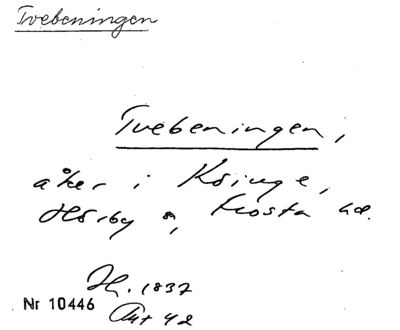 Tvebeningen
Tvebeningen,
åker i Ksinge,
Hörby s, Frosta hd.
H. 1837
Nr 10446 Akt 42